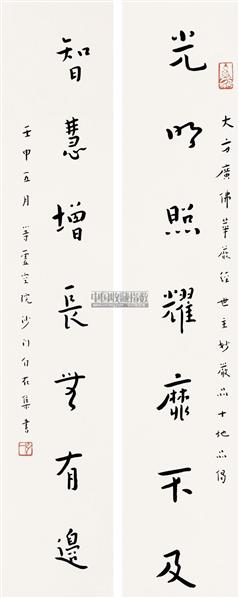 大方廣佛華嚴經世主妙嚴品十地品偈
光明照耀靡不及
智慧增長無有邊
壬申五月 沙门 集書
中国收藏指数